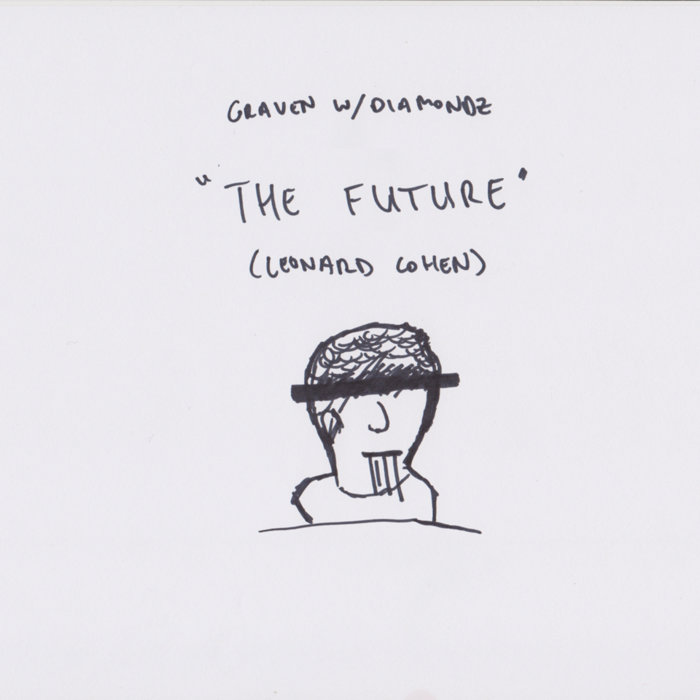 GRAVEN W/DIAMONDZ
"THE FUTURE"
(LEONARD COHEN)